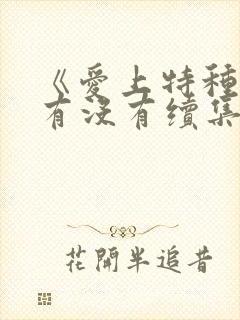 《爱上特种
有没有续集
花開半追昔